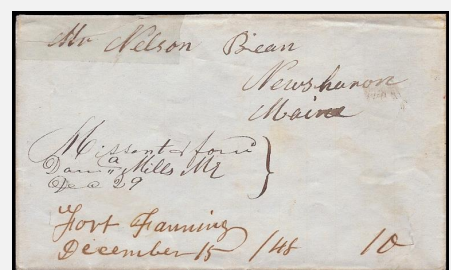 Mr Nelson Bean
Newsharon
Maine
Missent & ford
Dana Mills Me
Dec 29
Fort Fanning
December 15 /48 10